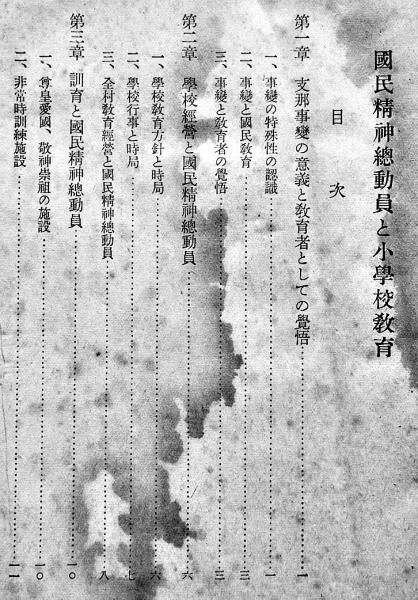 國民精神總動員と小學校教育
目次
第一章 支那事變の意義と教育者としての覺悟……一
一、事變の特殊性の認識……一
二、事變と國民敎育……三
三、事變と敎育者の覺悟……三
第二章 學校經營と國民精神總動員……六
一、學校敎育方針と時局……六
二、學校行事と時局……七
三、全村敎育經營と國民精神總動員……八
第三章 訓育と國民精神總動員……一〇
一、尊皇愛國、敬神崇祖の施設……一〇
二、非常時訓練施設……一一